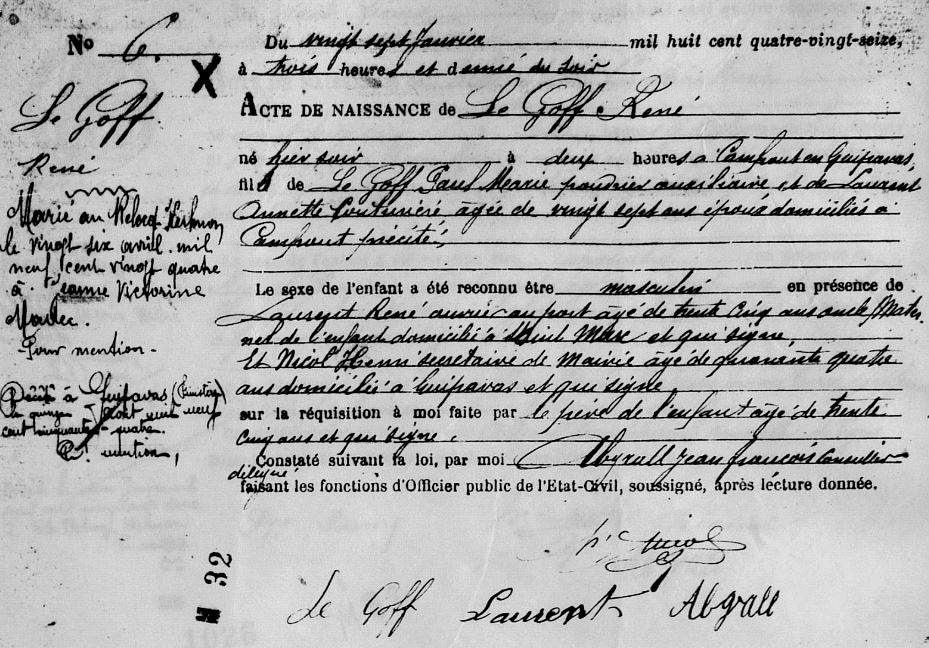 Nº 6.
Le Goff
René
Marié au Relecq-Kerhuon
le vingt six avril mil
neuf cent vingt quatre
à Jeanne Victorine
Pour mention.
Décédé à Guipavas (Finistère)
le quinze août mil neuf
cent cinquante-quatre.
Pr mention,
Du vingt sept Janvier mil huit cent quatre-vingt-seize,
à trois heures et demie du soir
ACTE DE NAISSANCE de Le Goff René
né hier soir à deux heures à Camfrout en Guipavas,
fils de Le Goff Paul Marie poudrier auxiliaire et de Laurent
Annette Couturière âgée de vingt sept ans époux domiciliés à
Camfrout précité,
Le sexe de l'enfant a été reconnu être masculin en présence de
Laurent René ouvrier au port âgé de trente cinq ans oncle Mater
nel de l'enfant domicilié à Saint Marc et qui signe,
Et Nicol Henri secrétaire de Mairie âgé de quarante quatre
ans domicilié à Guipavas et qui signe,
sur la réquisition à moi faite par le père de l'enfant âgé de trente
cinq ans et qui signe.
Constaté suivant la loi, par moi Abgrall Jean François Conseiller
délégué
faisant les fonctions d'Officier public de l'Etat-Civil, soussigné, après lecture donnée.
32
Nicol
Le Goff Laurent Abgrall